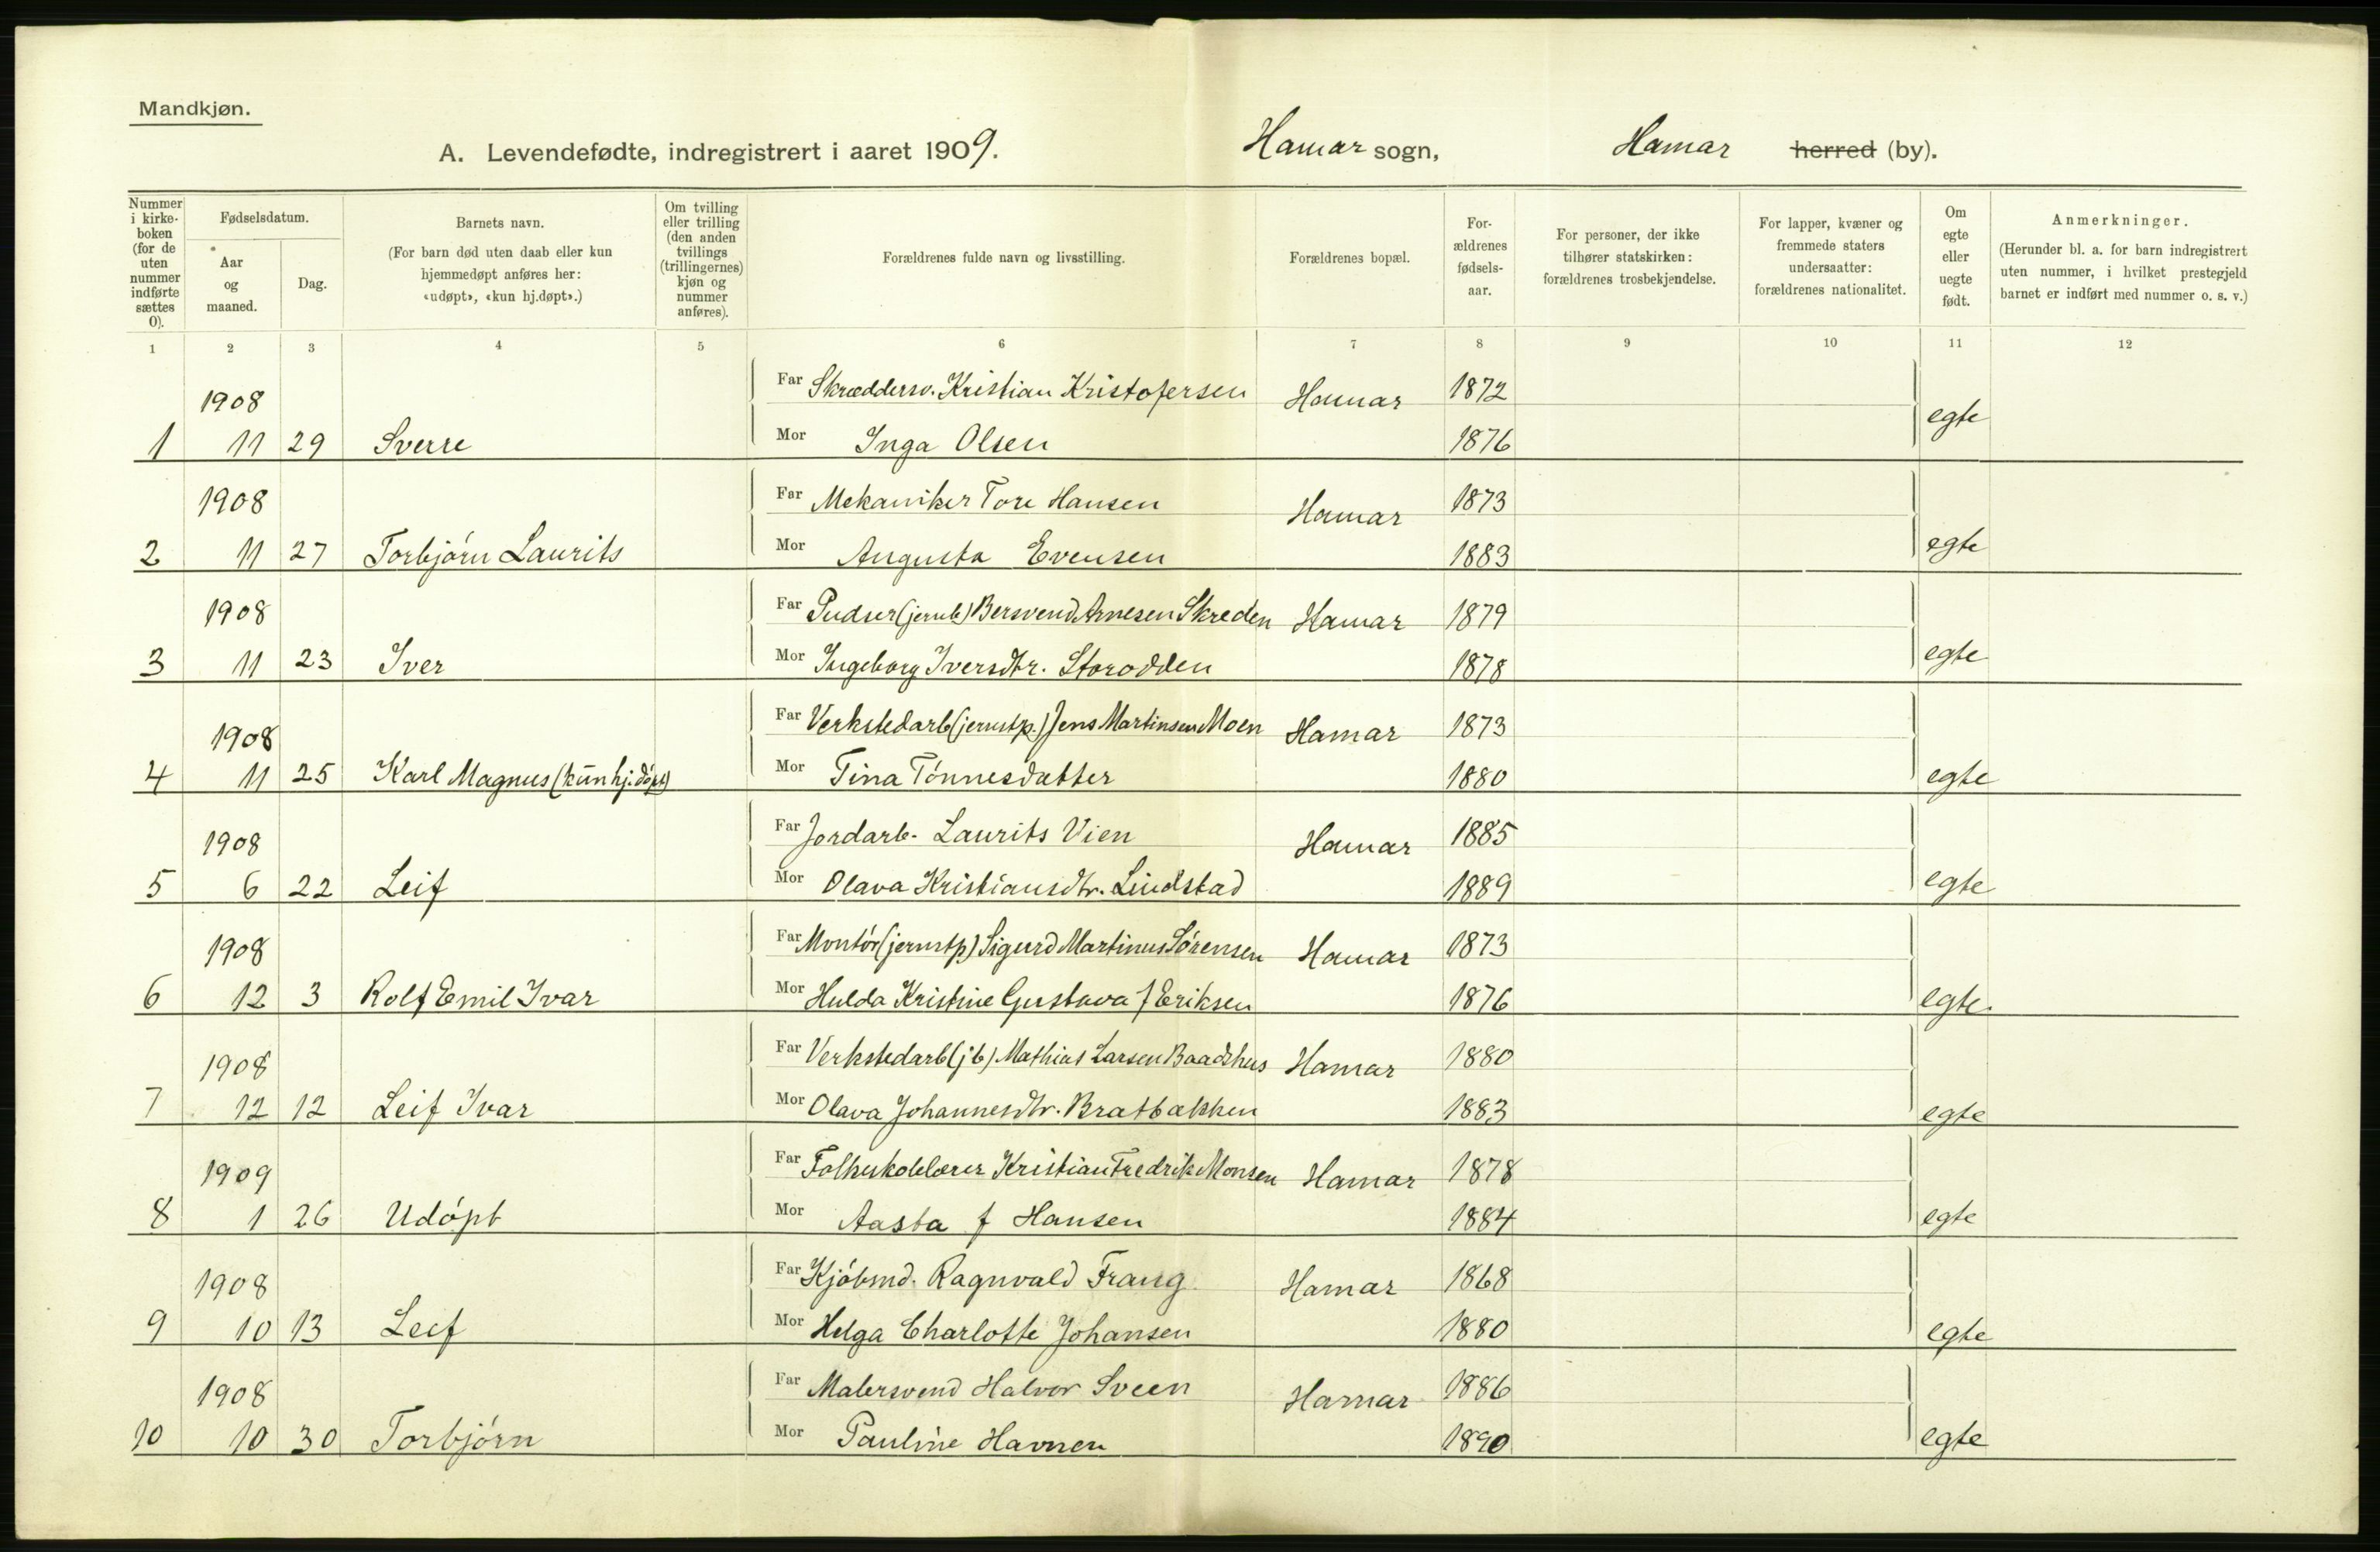 Mandkjøn.
A. Levendefødte, indregistrert i aaret 1909. Hamar sogn, Hamar herred (by).
Nummer i kirke- boken (for de uten nummer indførte sættes 0).
Fødselsdatum.
Aar og maaned.
Dag.
Barnets navn.
(For barn død uten daab eller kun hjemmedøpt anføres her: «udøpt», «kun hj.døpt».)
Om tvilling eller trilling (den anden tvillings (trillingernes) kjøn og nummer anføres).
Forældrenes fulde navn og livsstilling.
Forældrenes bopæl.
For- ældrenes fødsels- aar.
For personer, der ikke tilhører statskirken: forældrenes trosbekjendelse.
For lapper, kvæner og fremmede staters undersaatter: forældrenes nationalitet.
Om egte eller uegte født.
Anmerkninger.
(Herunder bl. a. for barn indregistrert uten nummer, i hvilket prestegjeld barnet er indført med nummer o. s. v.)
1 2 3 4 5 6 7 8 9 10 11 12
1908 Far Skræddersv. Kristian Kristofersen Hamar 1872
1 11 29 Sverre Mor Inga Olsen 1876 egte
1908 Far Mekaniker Tore Hansen Hamar 1873
2 11 27 Torbjørn Laurits Mor Augusta Evensen 1883 egte
1908 Far Pudser (jernb) Bersvend Arnesen Skreden Hamar 1879
3 11 23 Iver Mor Ingeborg Iversdtr. Storodden 1878 egte
1908 Far Verkstedarb (jernstp.) Jens Martinsen Moen Hamar 1873
4 11 25 Karl Magnus (kun hj.døpt) Mor Tina Tønnesdatter 1880 egte
1908 Far Jordarb. Laurits Vien Hamar 1885
5 6 22 Leif Mor Olava Kristiansdtr. Lindstad 1889 egte
1908 Far Montör (jernstp) Sigurd Martinus Sørensen Hamar 1873
6 12 3 Rolf Emil Ivar Mor Hulda Kristine Gustava f Eriksen 1876 egte.
1908 Far Verkstedarb (jb) Mathias Larsen Baadshus Hamar 1880
7 12 12 Leif Ivar Mor Olava Johannesdtr. Bratbakken 1883 egte
1909 Far Folkeskolelærer Kristian Fredrik Monsen Hamar 1878
8 1 26 Udøpt Mor Aasta f Hansen 1884 egte
1908 Far Kjøbmd. Ragnvald Frang Hamar 1868
9 10 13 Leif Mor Helga Charlotte Johansen 1880 egte
1908 Far Malersvend Halvor Sveen Hamar 1886
10 10 30 Torbjørn Mor Pauline Havnen 1890 egte